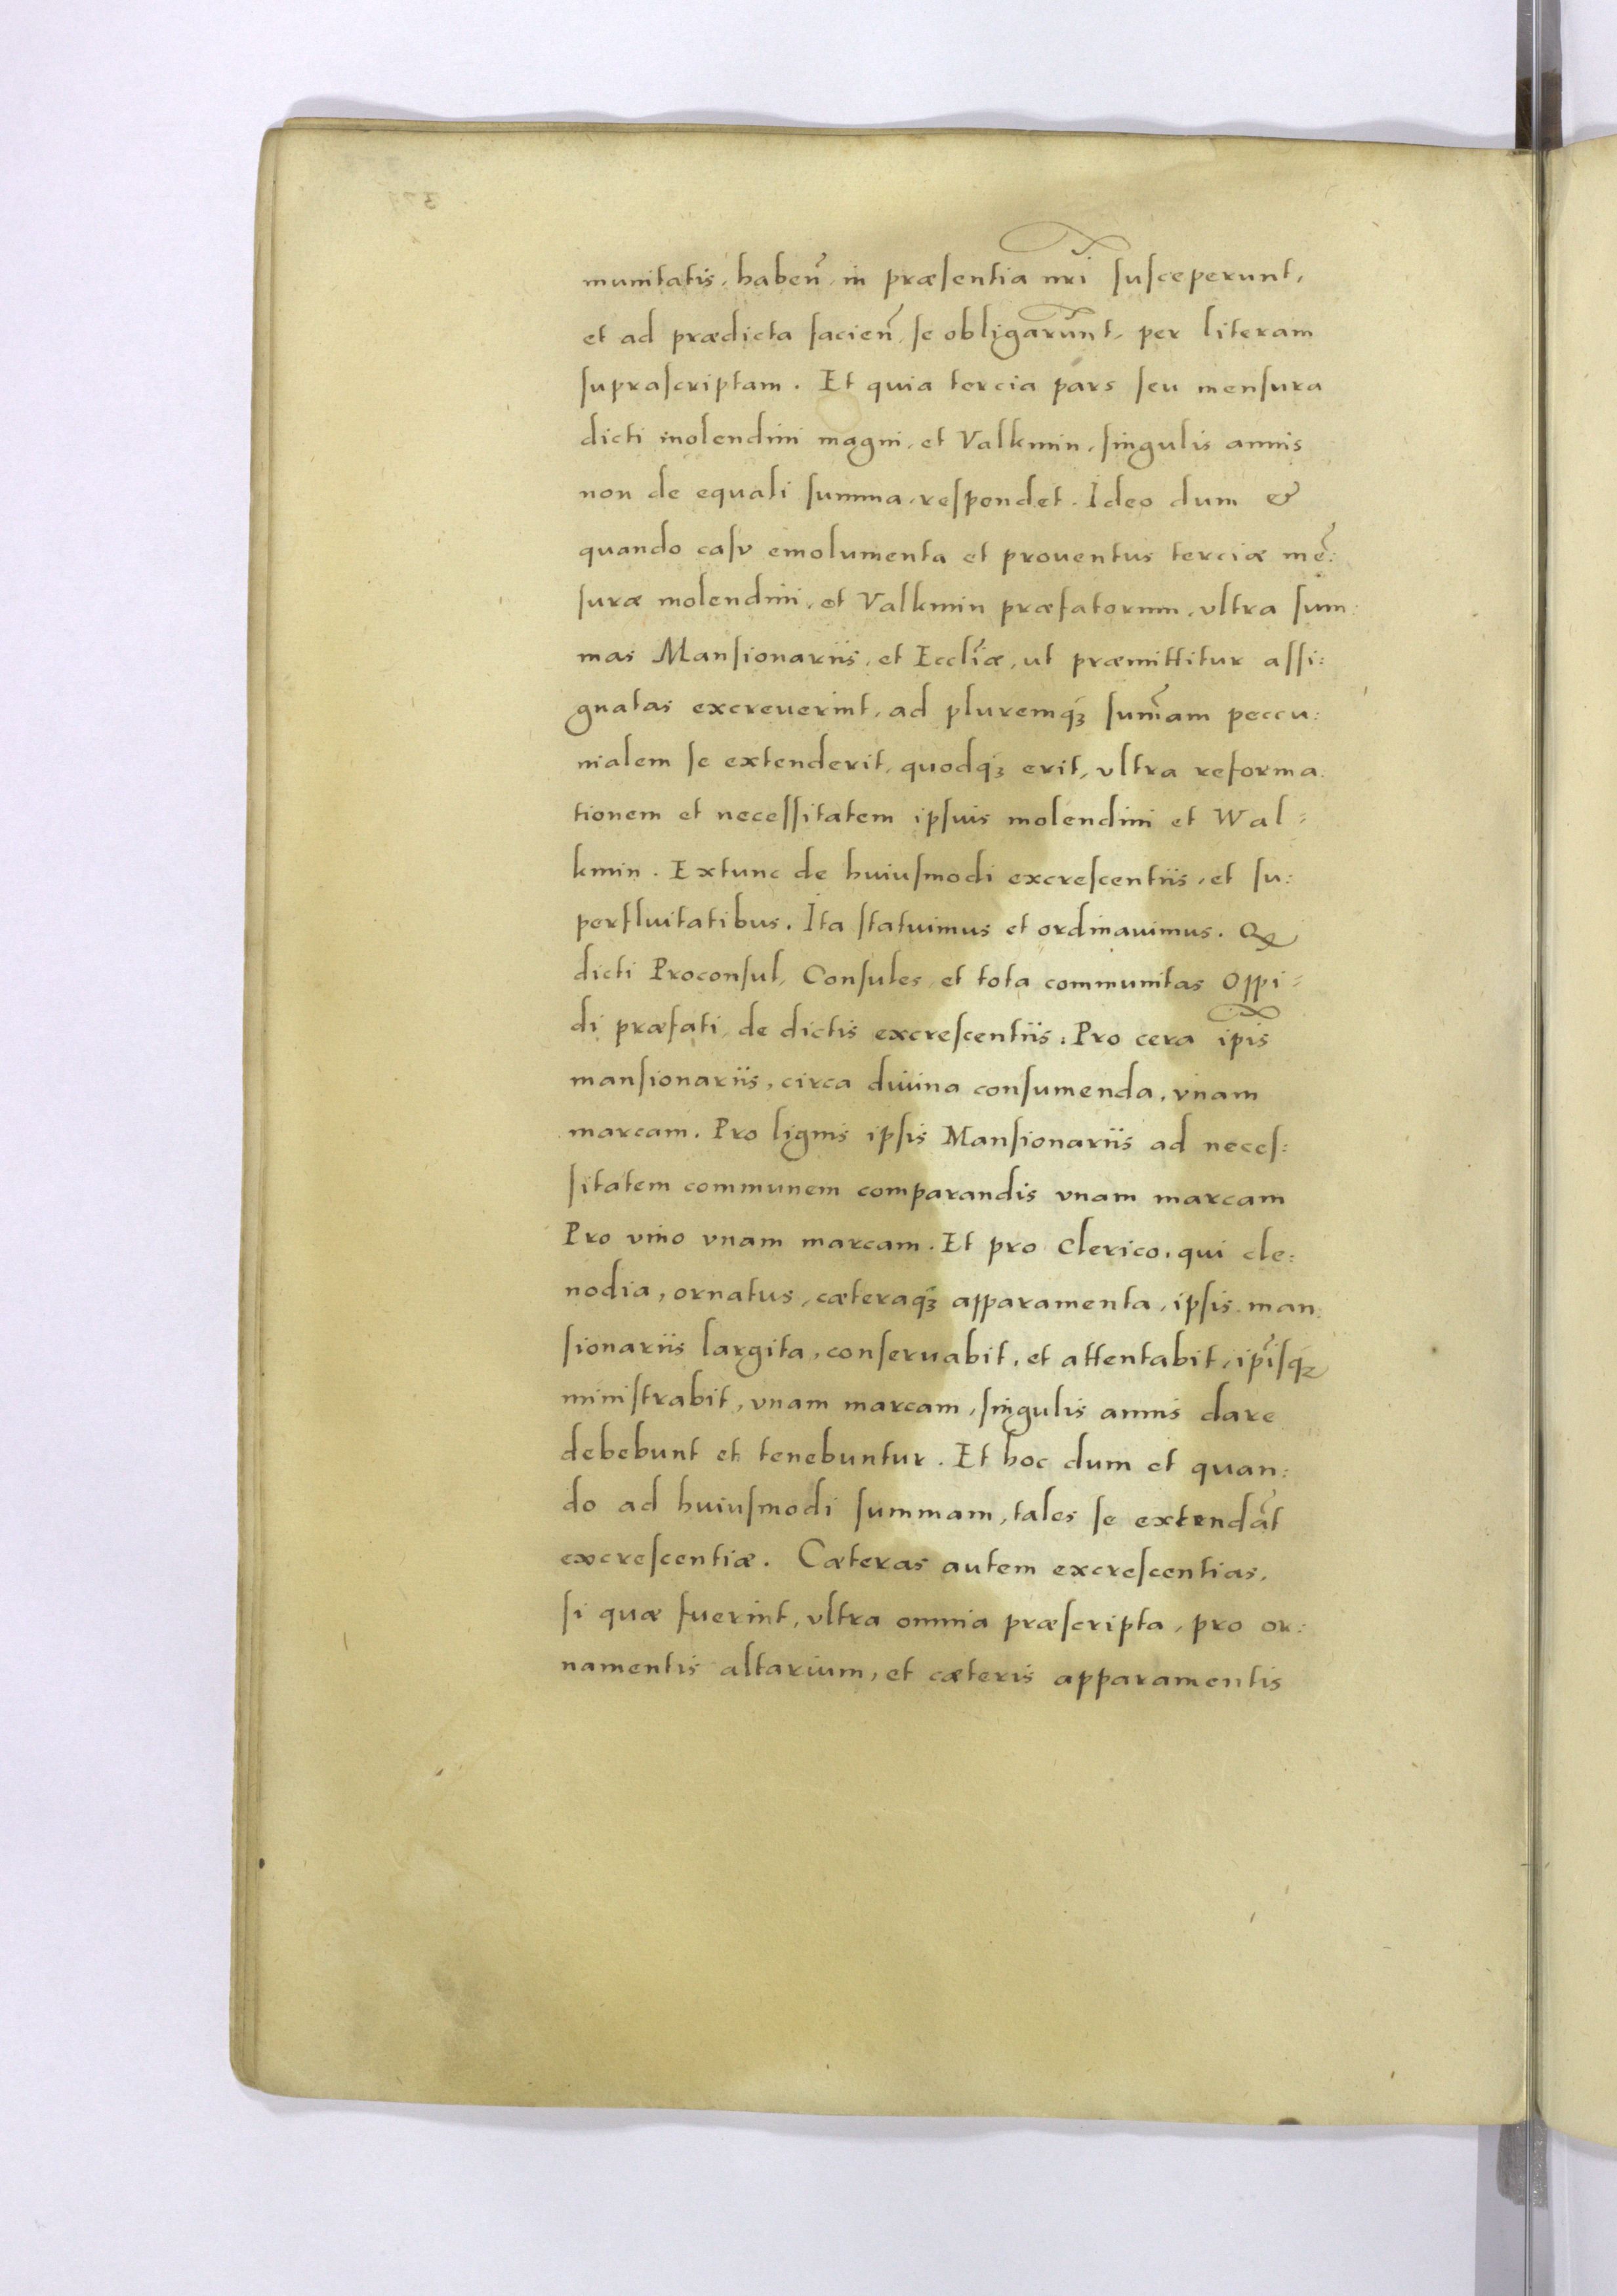 munitatis, haben̄, in præſentia nr̄i ſuſceperunt,
et ad prædicta facien̄, ſe obligarūnt, per literam
ſupraſcriptam. Et quia tercia pars ſeu menſura
dicti molendini magni, et Valkmin, ſingulis annis
non de equali ſumma, reſpondet. Ideo dum &
quando caſv emolumenta et prouentus terciæ mē:
ſuræ molendini, et Valkmin præfatorum, vltra ſum:
mas Manſionariis, et Eccl̄iæ, ut præmittitur aſſi:
gnatas excreuerint, ad pluremqꝫ ſum̄am peccu:
nialem ſe extenderit, quodqꝫ erit, vltra reforma:
tionem et neceſſitatem ipſuis molendini et Wal:
kmin. Extunc de huiuſmodi excreſcentiis, et ſu:
perfluitatibus. Ita ſtatuimus et ordinauimus. Ꝙ
dicti Proconſul, Conſules, et tota communitas Oppi:
di præfati, de dictis excreſcentiis: Pro cera ip̄is
manſionariis, circa diuina conſumenda, vnam
marcam. Pro lignis ipſis Manſionariis ad neceſ:
ſitatem communem comparandis vnam marcam
Pro vino vnam marcam. Et pro Clerico, qui cle:
nodia, ornatus, cæteraqꝫ apparamenta, ipſis man:
ſionariis largita, conſeruabit, et attentabit, ip̄iſqꝫ
miniſtrabit, vnam marcam, ſingulis annis dare
debebunt et tenebuntur. Et hoc dum et quan:
do ad huiuſmodi ſummam, tales ſe extendāt
excreſcentiæ. Cæteras autem excreſcentias,
ſi quæ fuerint, vltra omnia præſcripta, pro or:
namentis altarium, et cæteris apparamentis